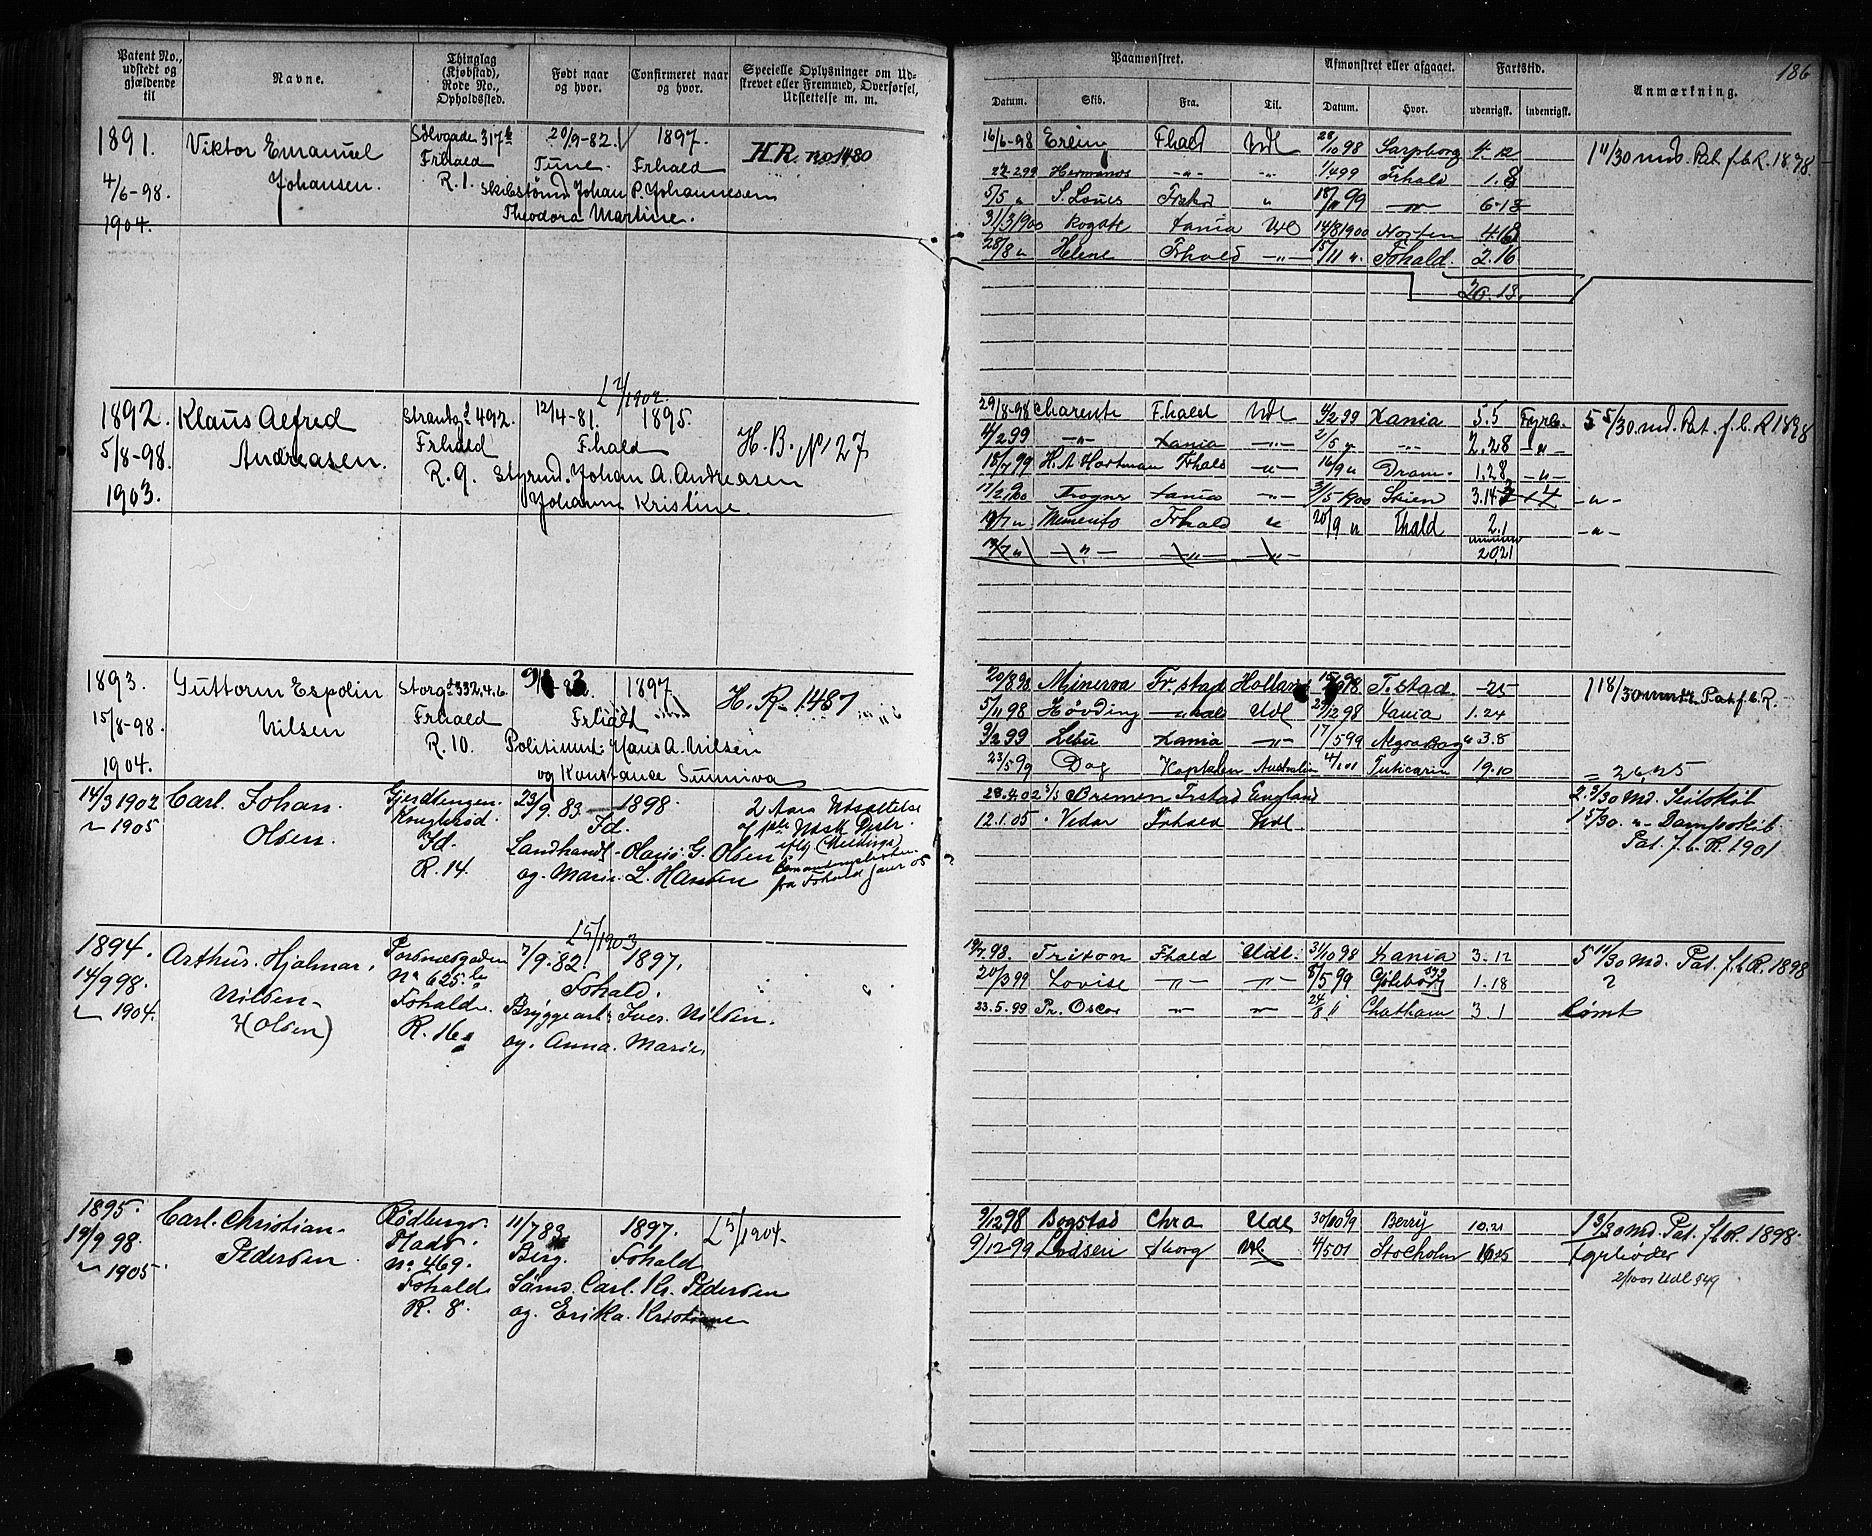 Patent No., udstedt og gjældende til
Navne.
Thinglag (Kjøbstad), Rode No., Opholdssted.
Født naar og hvor.
Confirmeret naar og hvor.
Specielle Oplysninger om Udskrevet eller Fremmed, Overførsel, Udslettelse m. m.
Paamønstret.
Afmønstret eller afgaaet.
Fartstid.
Anmærkning.
186
Datum. Skib. Fra. Til. Datum. Hvor. udenrigsk. indenrigsk.
1891.
4/6-98.
1904.
Viktor Emanuel
Johansen.
Sølvgade 317b
Frhald
R. 1.
20/9-82. 1897.
Tune. Frhald
Johan P. Johannesen
Theodora Martine.
H.R. no 1480
16/6-98 Fhald Udl 28/10 98 Sarpborg 4.12
Hermanos -"- -"- 1/4 99 Frhald 1.8
5/5 " S. Louis " 18/11 99 -"- 6-18
31/3 1900 Rogate Xania Udl 14/8 1900 4.18
28/8 " Helene Frhald -"- 15/11 ". Fhald. 2.16
20.13.
1 11/30 mds. Pat. f. b. R. 1898.
1892.
5/8-98.
1903.
Klaus Alfred
Andreasen.
Strandg 492.
Frhald
R. 9.
L 2/1902.
12/4-81. 1895.
Fhald
Styrmd. Johan A. Andreasen
Johanne Kristine.
H. B. No 27
29/8-98 Charente F.hald Udl 4/2 99 Xania 5.5 Fyrb.
4/2 99 -"- Xania -"- 2/5 " -"- 2.28 -"-
18/7 99 H. A. Hartman Frhald -"- 16/9 " Dram. 1.28 -"-
Xania -"- 3/5 1900 Skien
Memento Frhald " 20/9 " Fhald 2.1
-"- -"- -"- 20 21
5 5/30 md. Pat. f. b. R 1898
-"-
-"-
1893.
15/8-98.
1904.
Guttorm Espolin
Nilsen
Storg 332.4.b.
Frhald
R. 10.
1897
Frhald
Politimnt. Hans A. Nilsen
og Konstance Sunniva
H. R. 1487
20/8 98 Minerva Fr.stad Holland F.stad -25
5/11 98 Høvding Udl 12 98 Xania 1.24
3/2 99 Xania -"- 17/5 99 3.8
23/5 99 Dag Australien 4/1 01 Tuticarin 19.10
1 18/30 Pat. f. b. R.
= 26 25
14/3 1902
" 1905
Carl. Johan.
Olsen.
Id.
R. 14.
23/9. 83. 1898.
Id.
Landhandl. G. Olsen
og. Marie. L. Hansen
2 Aars Udsættelse
fra Fhald Janr 05
28.4.02 Bremen Frstad England
12.1.05 Vidar Frhald Udl.
2. 3/30 Md. Seilskib
1 5/30. " Dampskib.
Pat. f. b. R. 1901
1894.
14/9 98.
" 1904.
Arthur. Hjalmar.
Nilsen
(Olsen)
No 625 b
Fhald
R. 16
L 5/1903
7/9. 82. 1897.
Fhald.
Bryggearb. Iver. Nilsen.
og. Anna. Marie.
19/9. 98. Triton Fhald Udl. 31/10 98 Xania 3.12
20/3 99 Lovise -"- -"- 8/5 99 Gøteborg 1.18
23.5.99 Pr. Oscar " " 24/8 " Chatham 3.1
5 11/30 Md. Pat. f. b. R. 1898
?
Rømt
1895.
19/9 98.
" 1905.
Carl. Christian.
Pedersen.
Rødbergs
Plads.
no 469.
Fhald
R. 8.
1897.
Berg. Fhald
Sømd. Carl. Kr. Pedersen
og. Erika. Kristiane
L 5/1904.
9/12 98 Bogstad Chra Udl Berry 10.21
9/12 99 4/5 01 Stocholm
1 3/30 Md. Pat. f. b. R. 1898.
Fyrbøder
Udl 549